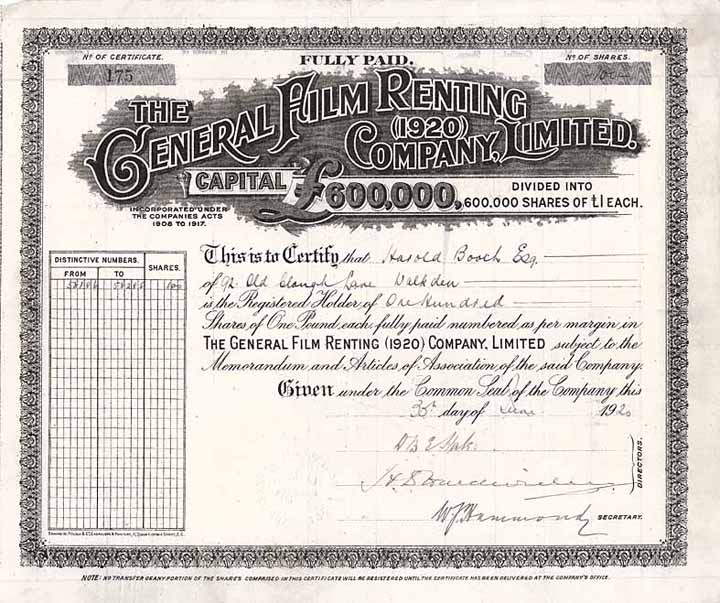 Nº OF CERTIFICATE.
175
FULLY PAID.
Nº OF SHARES.
100
THE
GENERAL FILM RENTING
(1920)
COMPANY, LIMITED.
CAPITAL £600,000,
DIVIDED INTO
600.000 SHARES OF £1 EACH.
INCORPORATED UNDER
THE COMPANIES ACTS
1908 TO 1917.
DISTINCTIVE NUMBERS.
SHARES.
FROM
TO
100
This is to Certify that Harold Booth Esq.
of 92 Old Clough Lane Walkden
is the Registered Holder of One Hundred
Shares of One Pound each, fully paid numbered as per margin in
THE GENERAL FILM RENTING (1920) COMPANY, LIMITED subject to the
Memorandum and Articles of Association of the said Company.
Given under the Common Seal of the Company this
day of June 1920
DIRECTORS.
W J Hammond
SECRETARY.
NOTE: NO TRANSFER OF ANY PORTION OF THE SHARES COMPRISED IN THIS CERTIFICATE WILL BE REGISTERED UNTIL THE CERTIFICATE HAS BEEN DELIVERED AT THE COMPANY'S OFFICE.